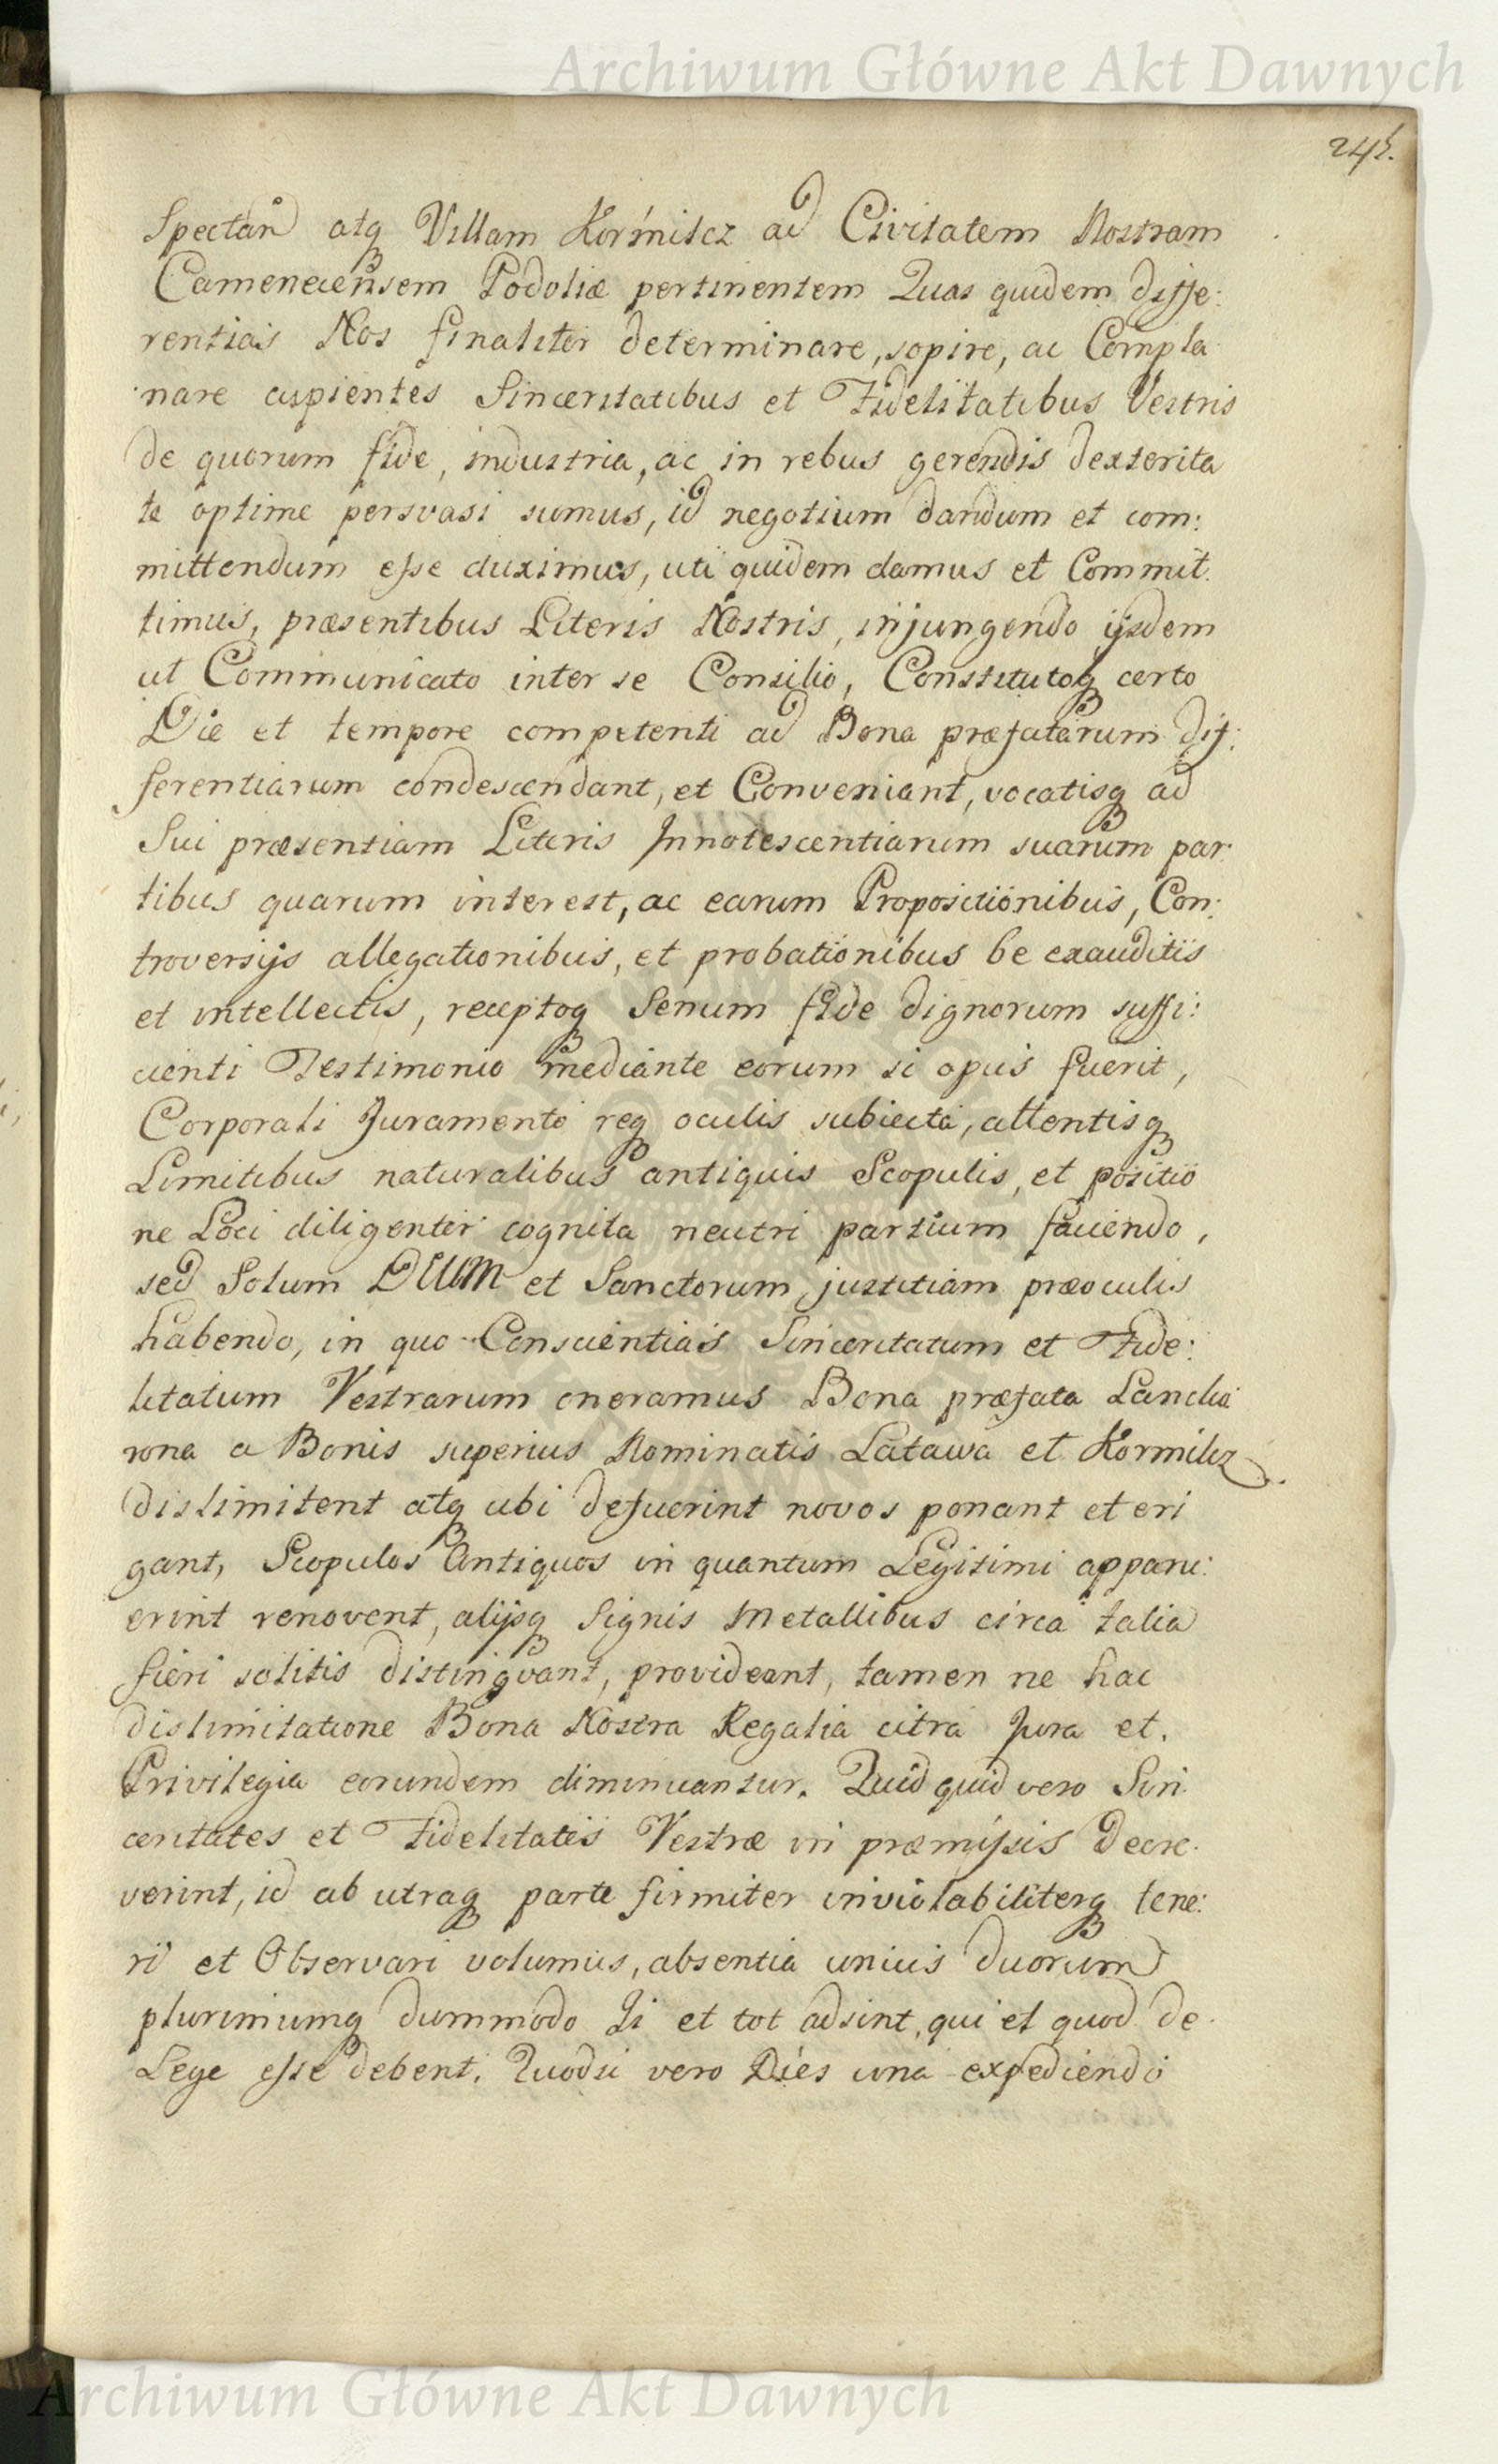 Archiwum Główne Akt Dawnych
245.
Spectan atq Villam Kormilcz ad Civitatem Nostram
Camenecensem Podoliæ pertinentem Quas quidem diffe:
rentias Nos finaliter determinare, sopire, ac Compla
nare cupientes Sinceritatibus et Fidelitatibus Vestris
de quorum fide, industria, ac in rebus gerendis dexterita
te optime persvasi sumus, id negotium dandum et com:
mittendum esse duximus, uti quidem damus et Commit.
timus, præsentibus Literis Nostris, injungendo ijsdem
ut Communicato inter se Consilio, Constitutoq certo
Die et tempore competenti ad Bona præfatarum dif:
ferentiarum condescendant, et Conveniant, vocatisq ad
Sui præsentiam Literis Innotescentiarum suarum par
tibus quarum interest, ac earum Propositionibus, Con:
troversijs allegationibus, et probationibus be exauditis
et intellectis, receptoq Senum fide dignorum suffi:
cienti Testimonio mediante eorum si opus fuerit,
Corporali Juramento req oculis subiecta, attentisq
Limitibus naturalibus antiquis Scopulis, et positio
ne Loci diligenter cognita neutri partium favendo,
sed Solum DEUM et Sanctorum justitiam præoculis
habendo, in quo Conscientias Sinceritatum et Fide:
litatum Vestrarum oneramus Bona præfata Lancko
rona a Bonis superius Nominatis Latawa et Kormilcz
dislimitent atq ubi defuerint novos ponant et eri
gant, Scopulos Antiquos in quantum Legitimi apparu:
erint renovent, alijsq Signis Metallibus circa talia
fieri solitis distingvant, provideant, tamen ne hac
dislimitatione Bona Nostra Regalia citra Jura et.
Privilegia eorundem diminuantur. Quid quid vero Sin
ceritates et Fidelitates Vestræ in præmissis Decre.
verint, id ab utraq parte firmiter inviolabiliterq tene:
ri et Observari volumus, absentia unius duorum
pluriniumq dummodo Ii et tot adsint, qui et quod de
Lege esse debent. Quodsi vero Dies una expediendo
Archiwum Główne Akt Dawnych